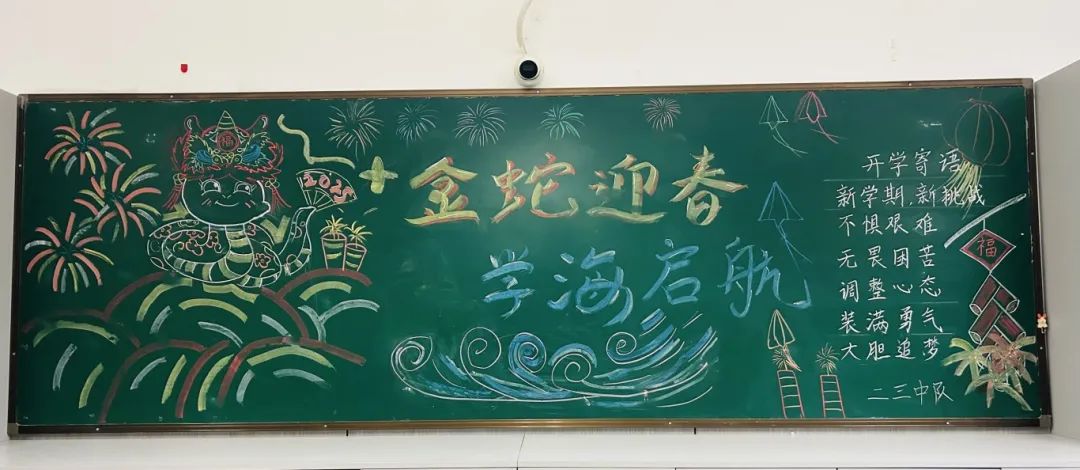 福
2025
金蛇迎春
学海启航
开学寄语
新学期,新挑战
不惧艰难
无畏困苦
调整心态
装满勇气
大胆追梦
二三中队
福